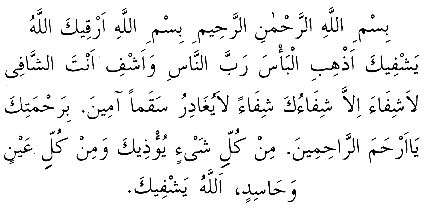 بِسْمِ اللّٰهِ الرَّحْمٰنِ الرَّحِيمِ بِسْمِ اللّٰهِ اَرْقِيكَ اَللّٰهُ
يَشْفِيكَ اَذْهِبِ الْبَأْسَ رَبَّ النَّاسِ وَاَشْفِ اَنْتَ الشَّافِى
لاَشِفَاءَ اِلاَّ شِفَاءُكَ شِفَاءً لاَيُغَادِرُ سَقَماً آمِينَ. بِرَحْمَتِكَ
يَااَرْحَمَ الرَّاحِمِينَ. مِنْ كُلِّ شَىْءٍ يُؤْذِيكَ وَمِنْ كُلِّ عَيْنٍ
وَحَاسِدٍ, اَللّٰهُ يَشْفِيكَ.